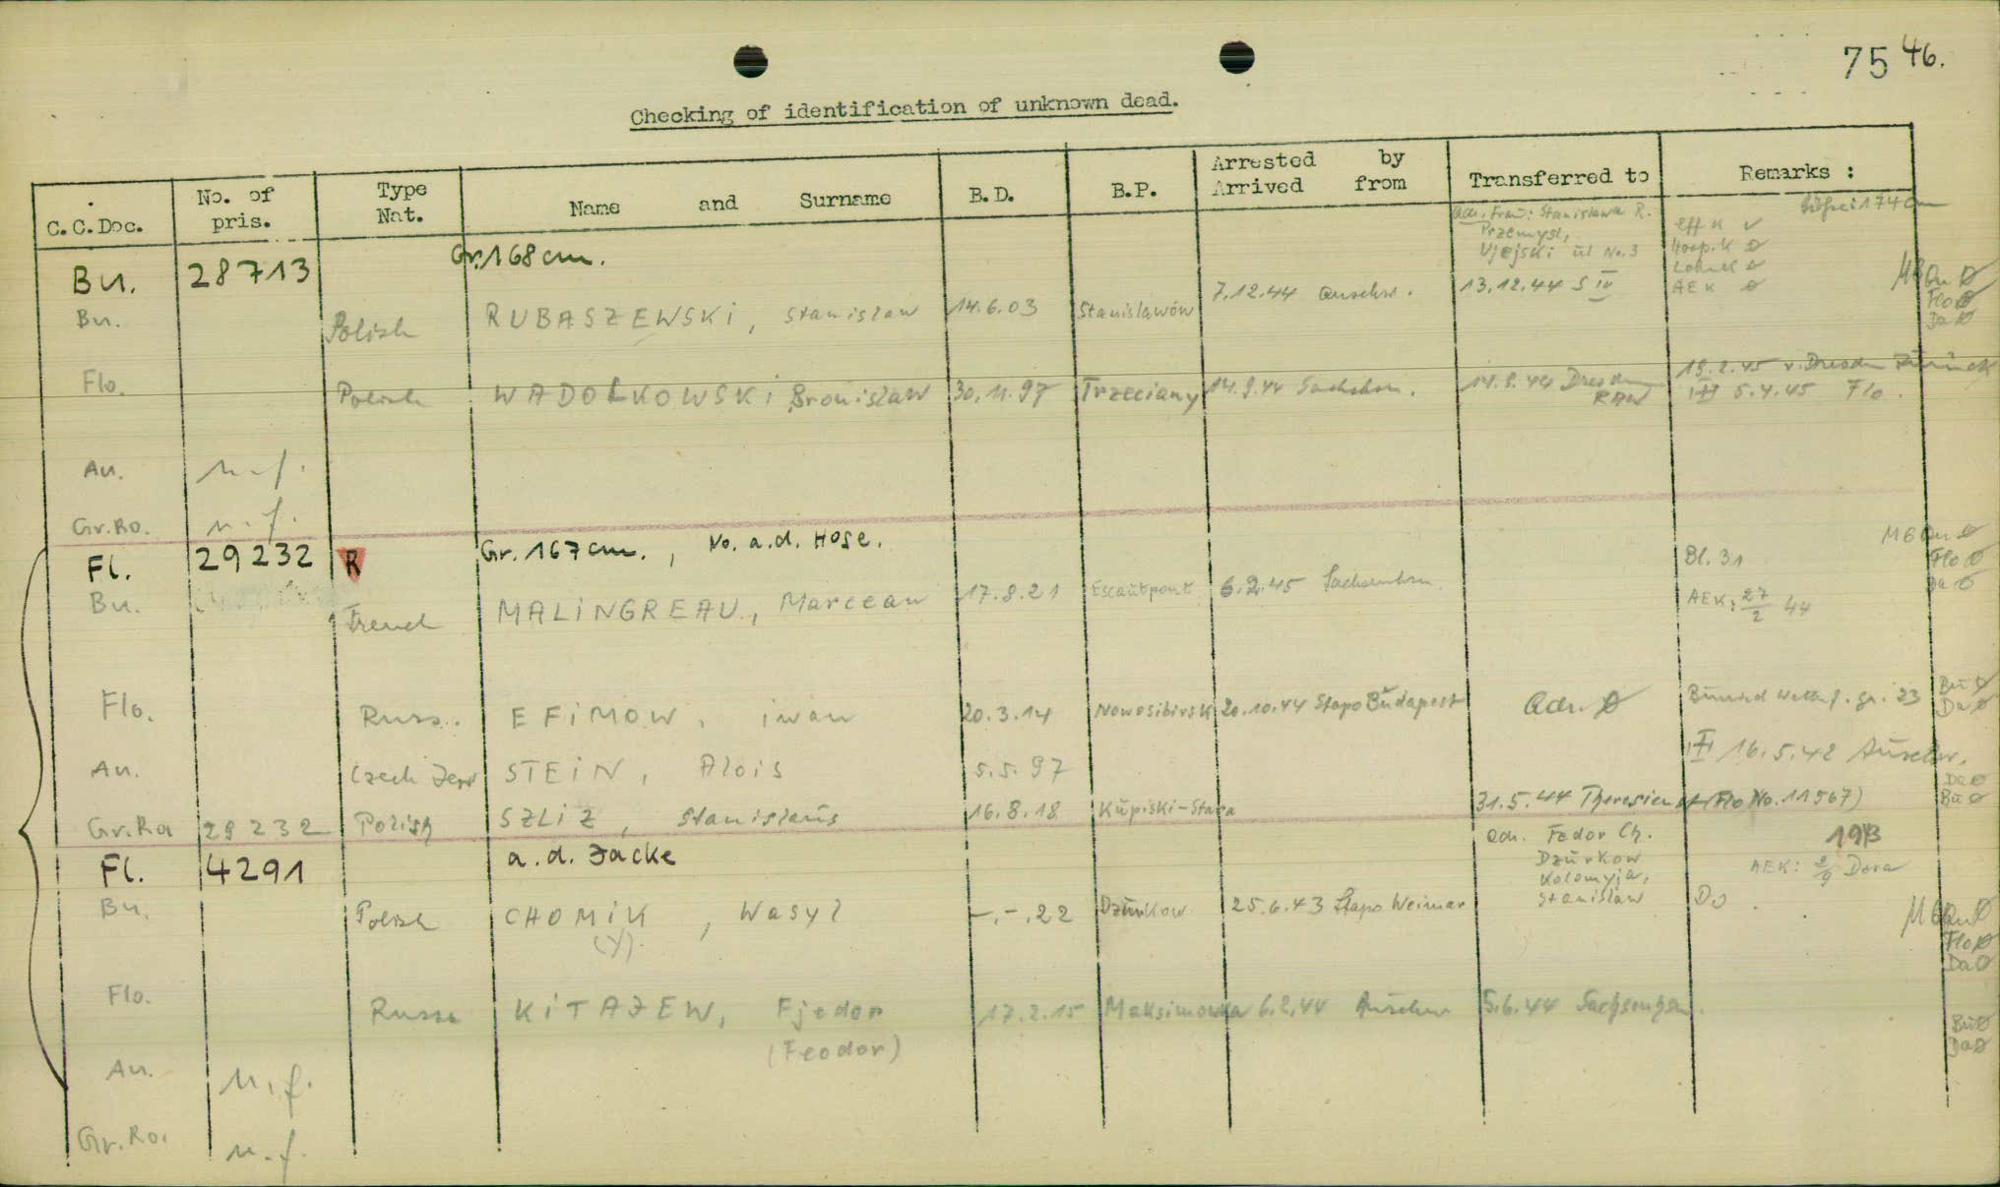 75 46.
Checking of identification of unknown dead.
C.C.Doc. No. of pris. Type Nat. Name and Surname B.D. B.P. Arrested by Arrived from Transferred to Remarks :
Adr. Frau: Stanislawa R. 174 cm
Przemysl, Eff K
Ujejski ul No.3 Hosp.K Ø
Bu. 28713 Gr.168cm. AEK Ø
Bu. Polish RUBASZEWSKI, Stanislaw 14.6.03 Stanislawów 7.12.44 Auschw. 13.12.44 S IV Flo Ø
Da Ø
Flo. Polish WADOLKOWSKI Bronislaw 30.11.97 Trzeciany 14.9.44 Sachshsn. 14.9.44 Dresden 19.2.45 v. Dresden zurück
RAW 5.4.45 Flo.
Au. n.f.
Gr.Ro. n.f.
Fl. 29232 R Gr. 167cm., No. a.d. Hose. Bl. 31 Flo Ø
Bu. French MALINGREAU, Marceau 17.8.21 Escautpont 6.2.45 Sachsenhsn AEK: 27/2 44 Da Ø
Flo. Russ. EFIMOW, iwan 20.3.14 Nowosibirsk 20.10.44 Stapo Budapest Adr. Ø 23 Bu Ø
Da Ø
Au. Czech Jew STEIN, Alois 5.5.97 16.5.42 Auschw.
31.5.44 (Flo No. 11567) Da Ø
Bu Ø
Gr.Ro 29232 Polish SZLIZ, Stanislaus 16.8.18 Kupiski-Stara
Fl. 4291 a.d. Jacke Adr. Fedor Ch.
Dzurkow AEK: Dora
Kolomyja,
Bu. Polish CHOMIK, Wasyl -.-.22 Dzurkow 25.6.43 Stapo Weimar Stanislaw Do
(Y) Flo Ø
Da Ø
Flo. Russ. KITAJEW, Fjedor 17.2.15 Maksimowka 6.2.44 Auschw 5.6.44 Bu Ø
(Feodor) Da Ø
Au. n.f.
Gr.Ro. n.f.